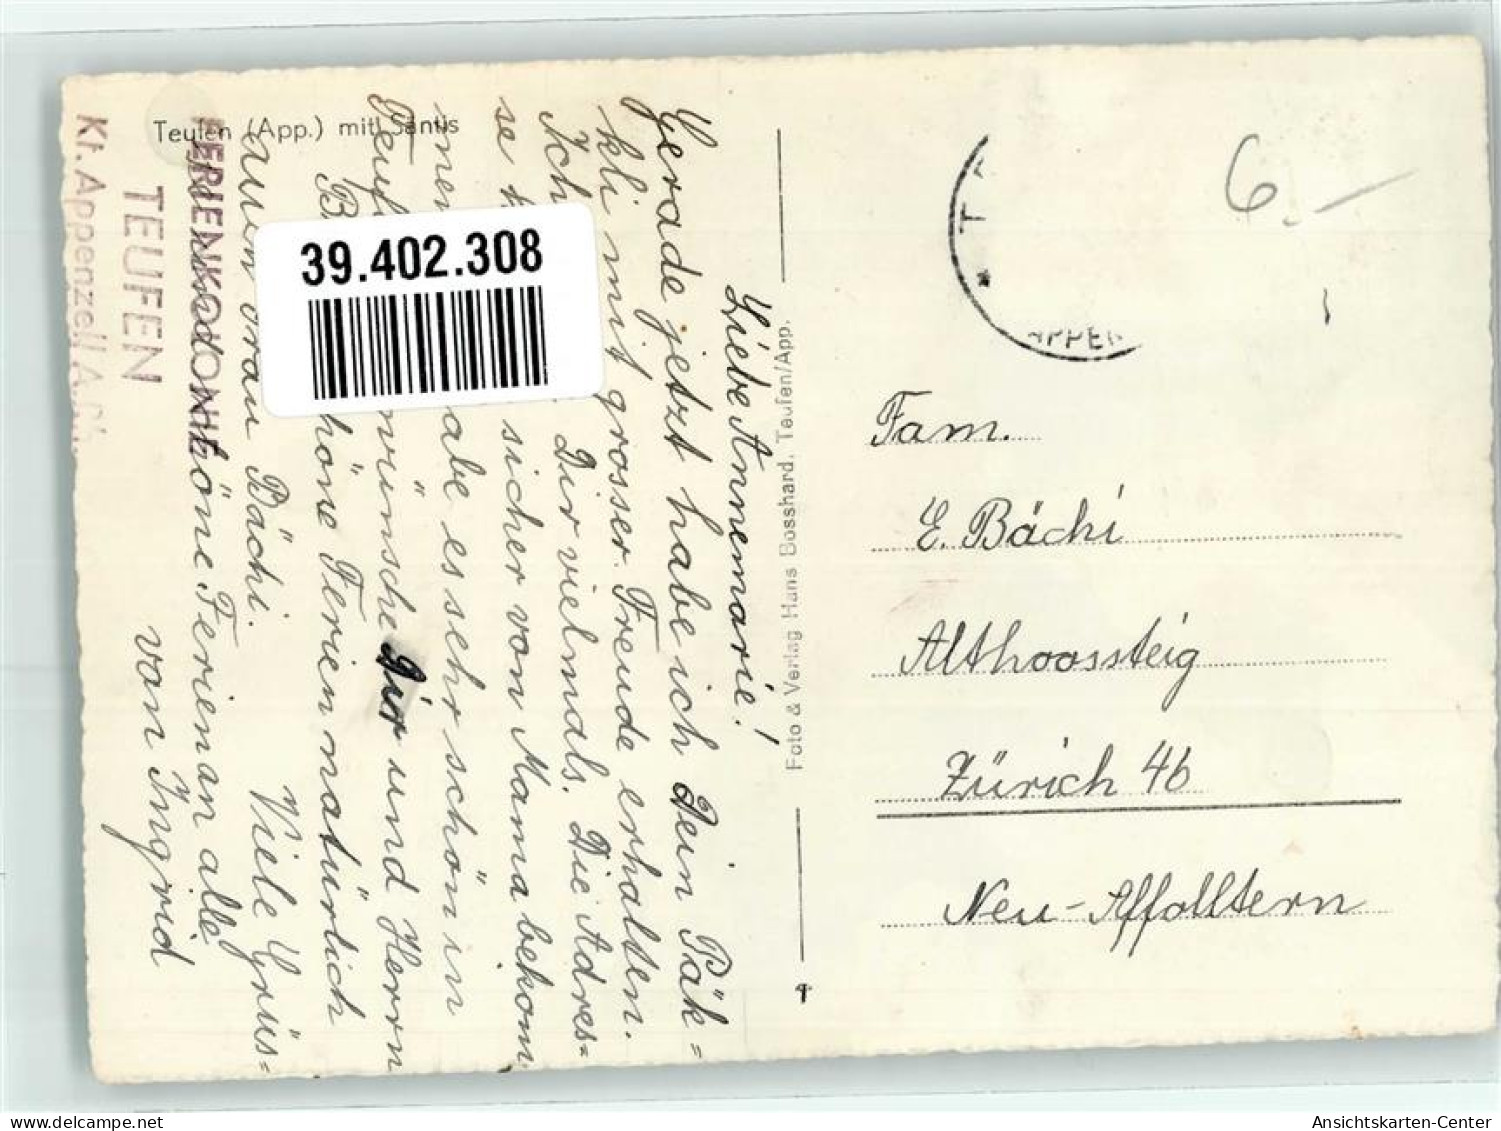 Teufen (App.) mit Säntis
FERIENKOLONIE
TEUFEN
Kt. Appenzell A.Rh.
39.402.308
Liebe Annemarie!
Gerade jetzt habe ich Dein Päk=
kli mit grosser Freude erhalten.
Ich Dir vielmals. Die Adres=
se sicher von Mama bekom=
men abe es sehr schön in
Teufen wünsche Dir und Herrn
B höne Ferien natürlich
auch Frau Bächi. Viele Grüs=
se und schöne Ferien an alle
von Ingrid
Foto & Verlag Hans Bosshard, Teufen/App.
APPEN
6.-
Fam.
E. Bächi
Althoossteig
Zürich 46
Neu-Affolltern
Ansichtskarten-Center